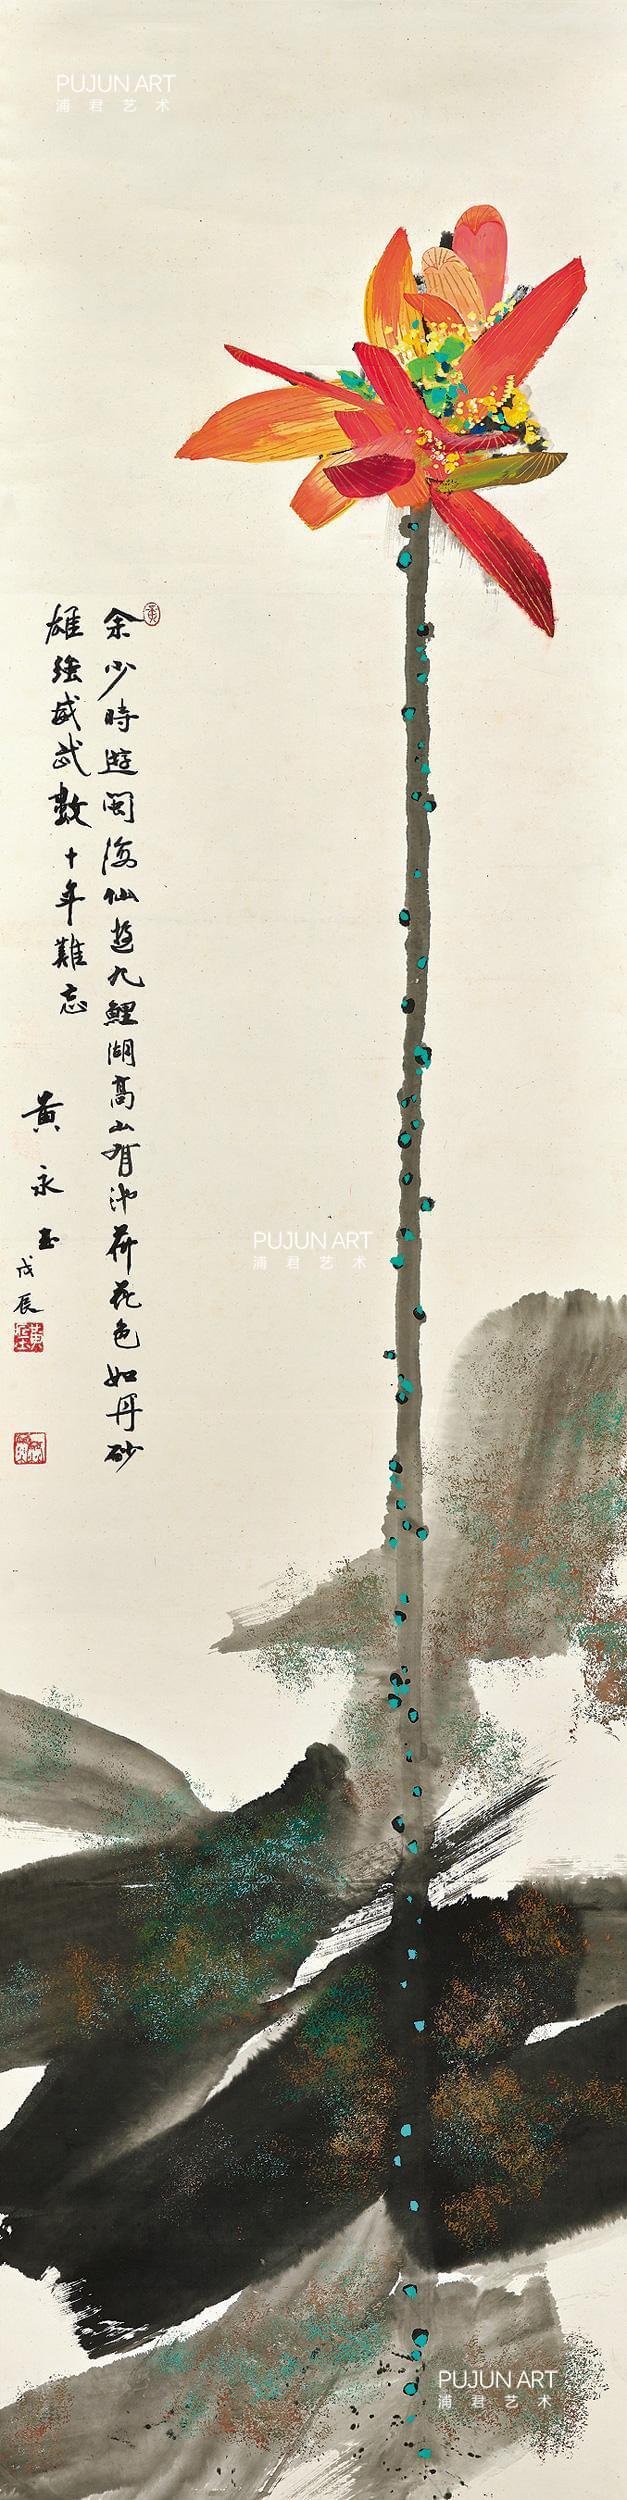 PUJUN ART
浦君艺术
余少時遊閩海仙遊九鯉湖高山有池荷花色如丹砂
雄強威武數十年難忘
黄永玉
戊辰
PUJUN ART
浦君艺术
PUJUN ART
浦君艺术